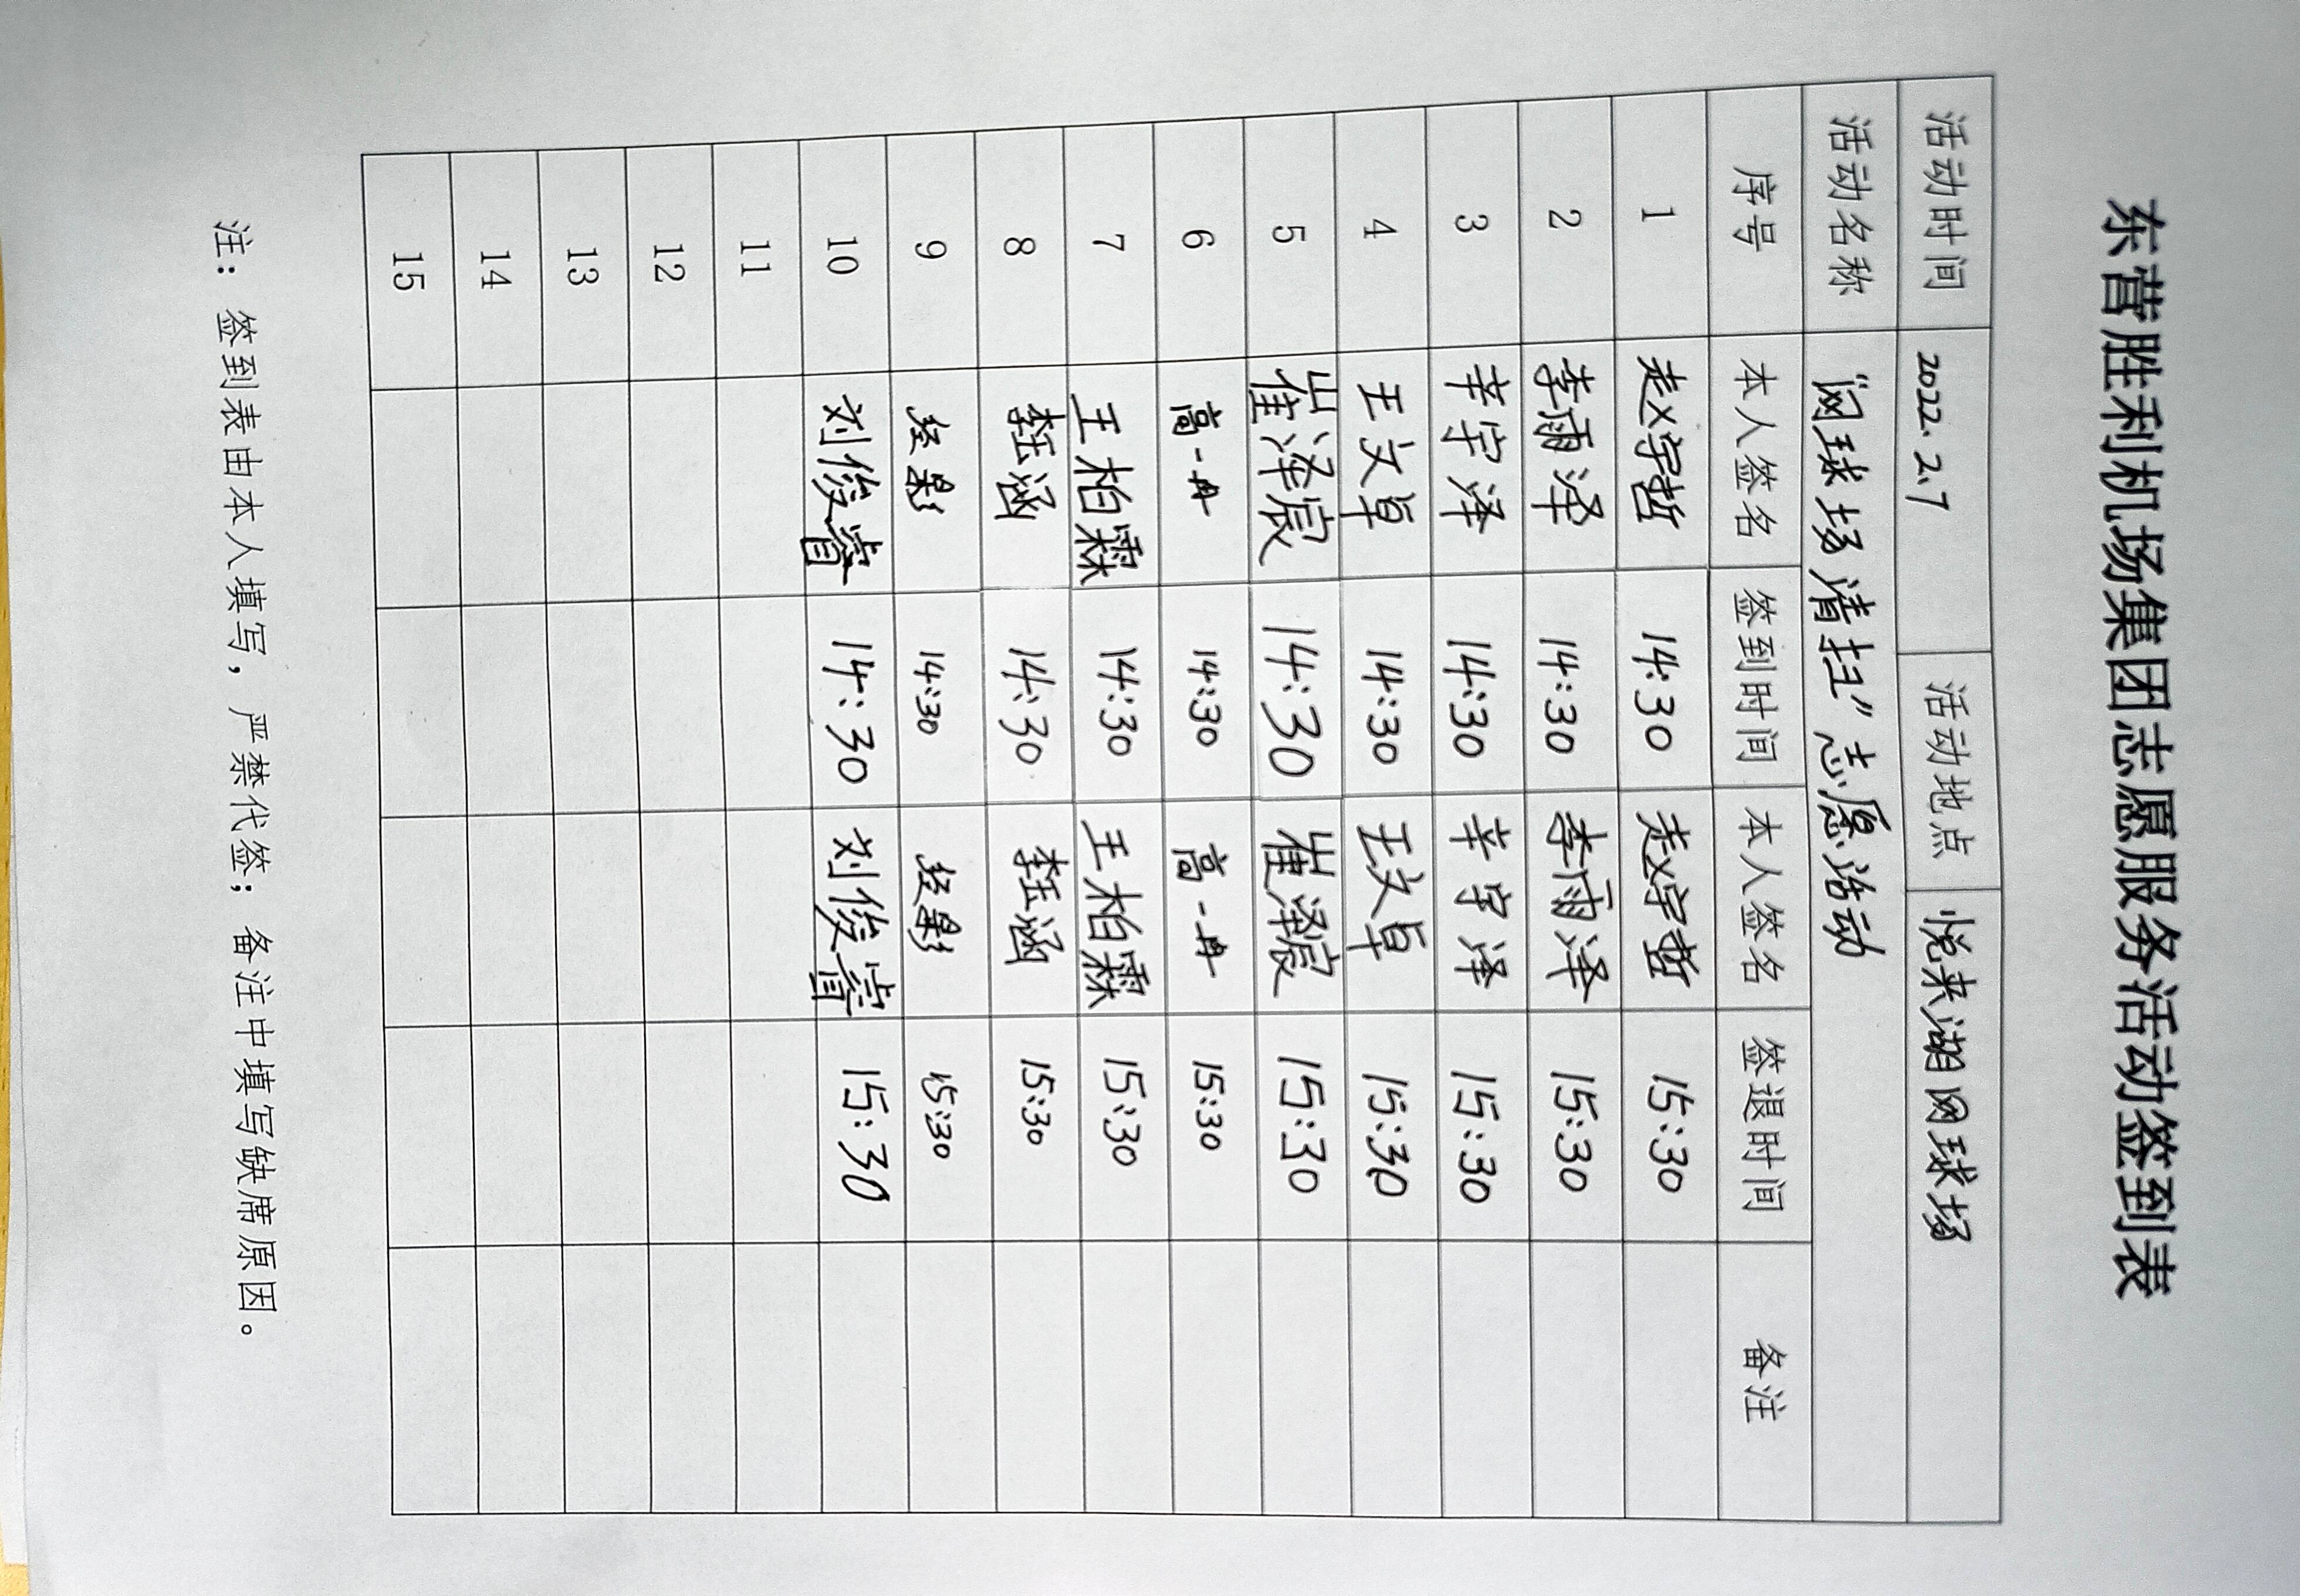 东营胜利机场集团志愿服务活动签到表
活动时间 2022.2.7 活动地点 悦来湖网球场
活动名称 “网球场清扫”志愿活动
序号 本人签名 签到时间 本人签名 签退时间 备注
1 赵宇哲 14:30 赵宇哲 15:30
2 李雨泽 14:30 李雨泽 15:30
3 辛宇泽 14:30 辛宇泽 15:30
4 王文卓 14:30 王文卓 15:30
5 崔泽宸 14:30 崔泽宸 15:30
6 高一冉 14:30 高一冉 15:30
7 王柏霖 14:30 王柏霖 15:30
8 李钰涵 14:30 李钰涵 15:30
9 14:30 15:30
10 刘俊睿 14:30 刘俊睿 15:30
11
12
13
14
15
注：签到表由本人填写，严禁代签；备注中填写缺席原因。